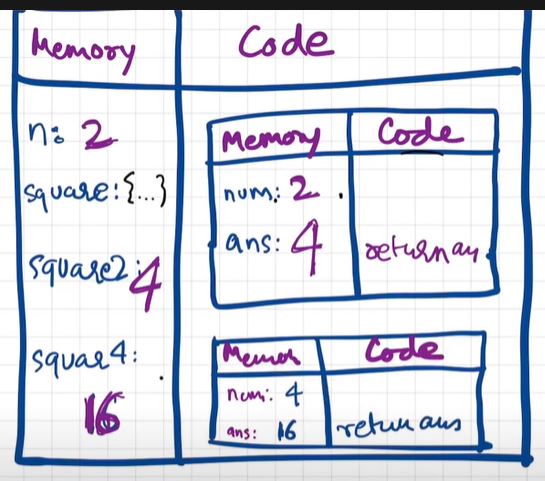 Memory Code
n: 2
square: {...}
square2: 4
squar4:
16
Memory Code
num: 2 .
ans: 4
return an
Memor Code
num: 4
ans: 16
return ans